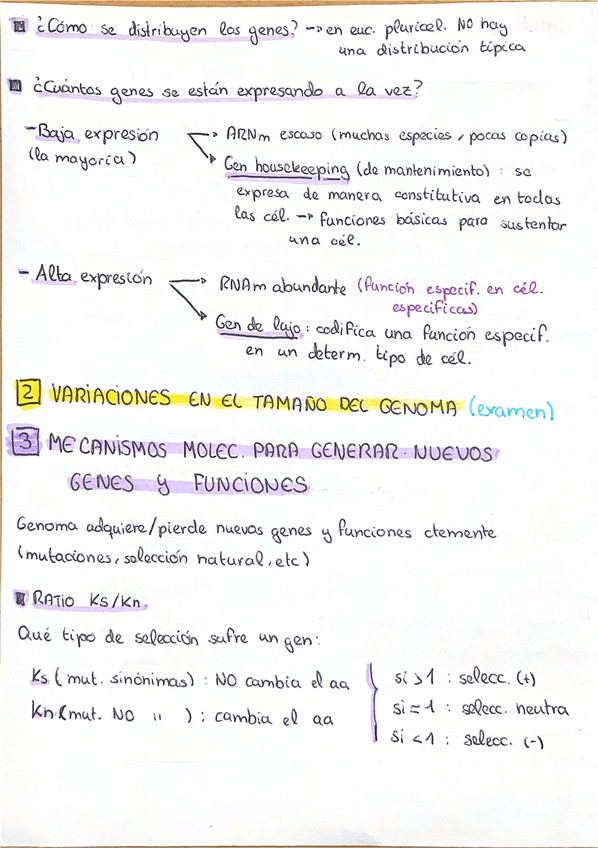 ¿Cómo se distribuyen los genes? → en euc. pluricel. NO hay
una distribución típica
¿Cuántos genes se están expresando a la vez?
- Baja expresión → ARNm escaso (muchas especies, pocas copias)
(la mayoría) → Gen housekeeping (de mantenimiento) : se
expresa de manera constitutiva en todas
las cél. → funciones básicas para sustentar
una cél.
- Alta expresión → RNAm abundante (función especif. en cél.
especificas)
→ Gen de lujo : codifica una función especif.
en un determ. tipo de cél.
2 VARIACIONES EN EL TAMAÑO DEL GENOMA (examen)
3 MECANISMOS MOLEC. PARA GENERAR NUEVOS
GENES Y FUNCIONES
Genoma adquiere/pierde nuevos genes y funciones ctemente
(mutaciones, selección natural, etc)
RATIO Ks/Kn
Qué tipo de selección sufre un gen:
Ks (mut. sinónimas) : NO cambia el aa
Kn (mut. NO " ) : cambia el aa
si >1 : selecc. (+)
si =1 : selecc. neutra
si <1 : selecc. (-)